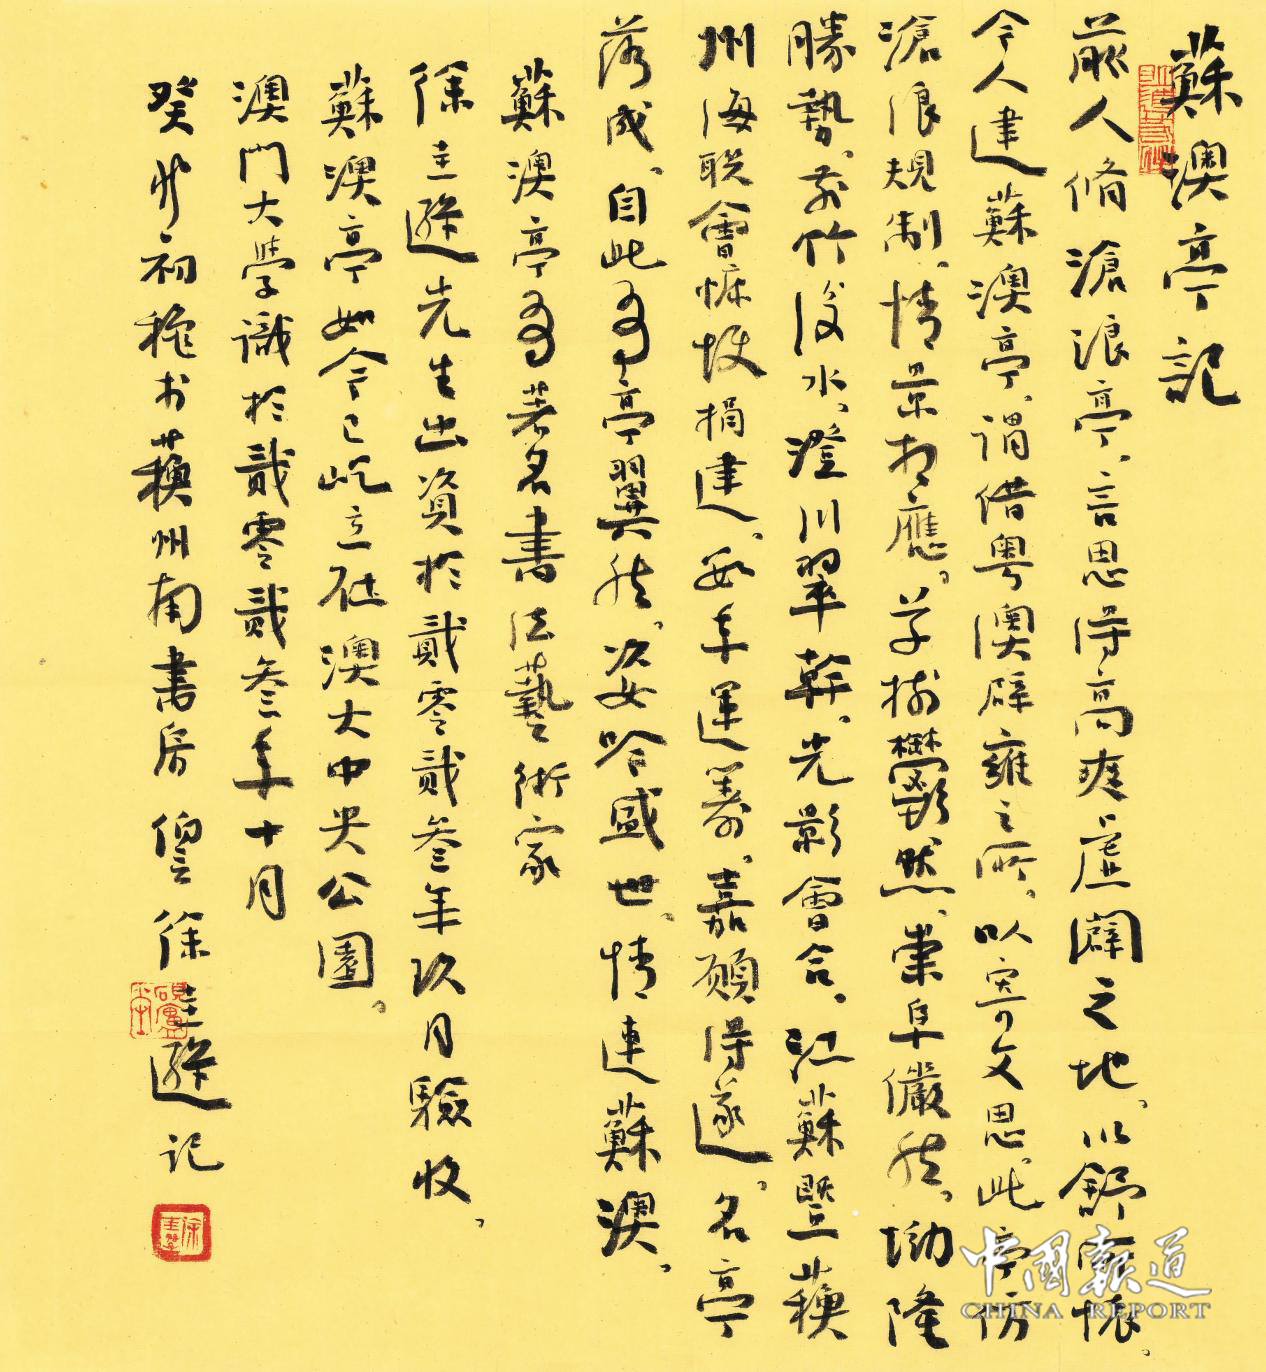 蘇澳亭記
前人脩滄浪亭、言思得高爽虛闢之地、以舒所懷。
今人建蘇澳亭、謂借粵澳辟雍之所、以寄文思。此亭仿
滄浪規制、情景相應。草樹鬱然、崇阜儼然、坳隆
勝勢、前竹後水、澄川翠幹、光影會合、江蘇暨蘇
州海聯會慷慨捐建、數年運籌、嘉願得遂。名亭
落成、自此有亭翼然、姿吟盛世、情連蘇澳。
蘇澳亭為著名書法藝術家
徐圭遜先生出資於貳零貳叁年玖月驗收。
蘇澳亭如今已屹立在澳大中央公園。
澳門大學識於貳零貳叁年十月
癸卯初穐書蘇州南書房徐圭遜記
中國報道
CHINA REPORT